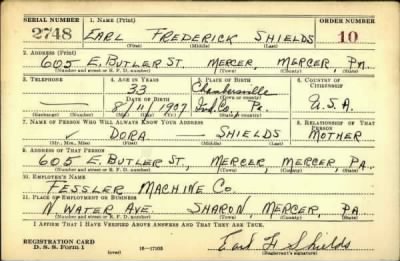 SERIAL NUMBER 1. NAME (Print) ORDER NUMBER
2748 EARL FREDERICK SHIELDS 10
(First) (Middle) (Last)
2. ADDRESS (Print)
605 E. BUTLER ST. MERCER, MERCER, PA.
(Number and street or R. F. D. number) (Town) (County) (State)
3. TELEPHONE 4. AGE IN YEARS 5. PLACE OF BIRTH 6. COUNTRY OF CITIZENSHIP
33 Chambersville
DATE OF BIRTH (Town or county)
— 8/11/1907 Ind. Co., Pa. U.S.A.
(Mo.) (Day) (Yr.) (State or country)
7. NAME OF PERSON WHO WILL ALWAYS KNOW YOUR ADDRESS 8. RELATIONSHIP OF THAT PERSON
✓ DORA — SHIELDS MOTHER
(Mr., Mrs., Miss) (First) (Middle) (Last)
9. ADDRESS OF THAT PERSON
605 E. BUTLER ST., MERCER, MERCER PA.
(Number and street or R. F. D. number) (Town) (County) (State)
10. EMPLOYER'S NAME
FESSLER MACHINE CO.
11. PLACE OF EMPLOYMENT OR BUSINESS
N. WATER AVE. SHARON, MERCER, PA
(Number and street or R. F. D. number) (Town) (County) (State)
I AFFIRM THAT I HAVE VERIFIED ABOVE ANSWERS AND THAT THEY ARE TRUE.
REGISTRATION CARD
D. S. S. Form 1 (over) 16—17105 Earl F Shields
(Registrant's signature)